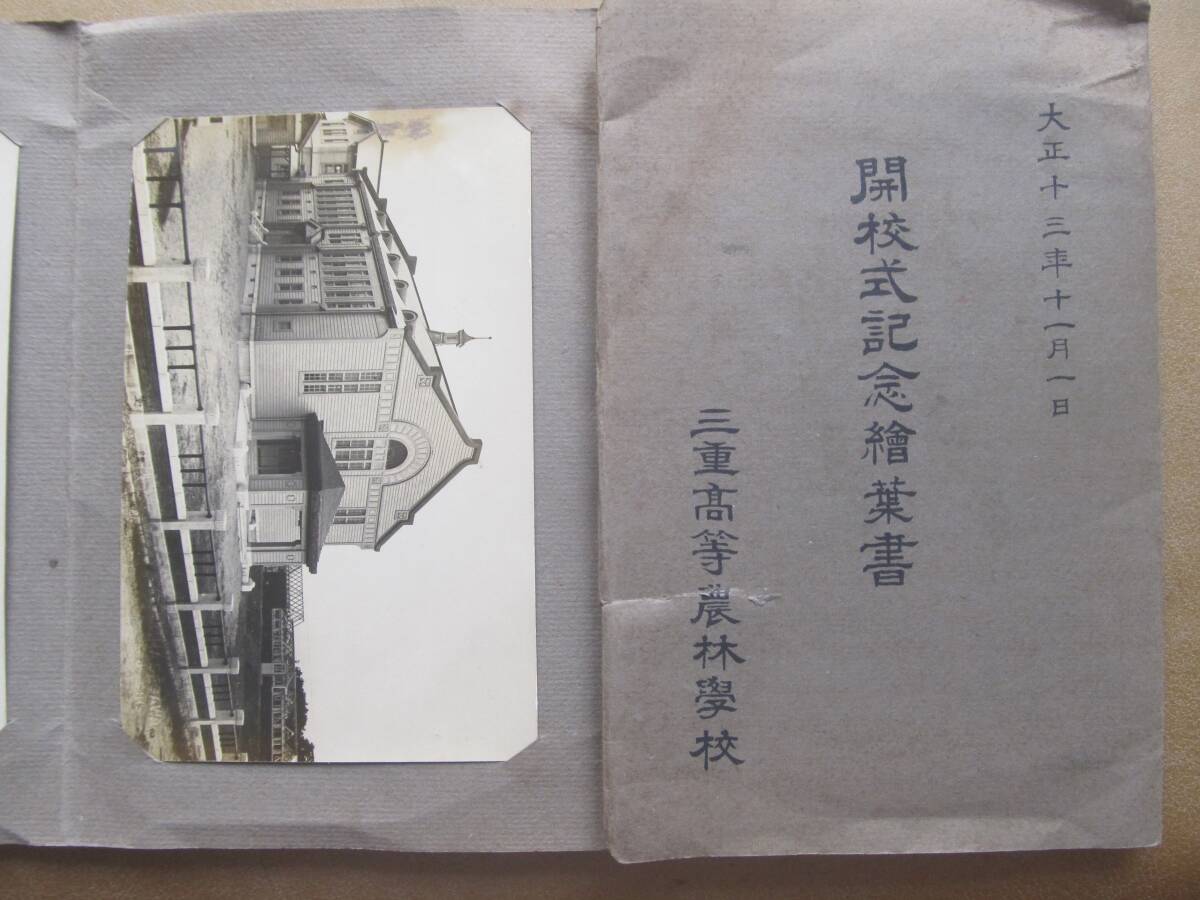 大正十三年十一月一日
開校式記念繪葉書
三重髙等農林學校